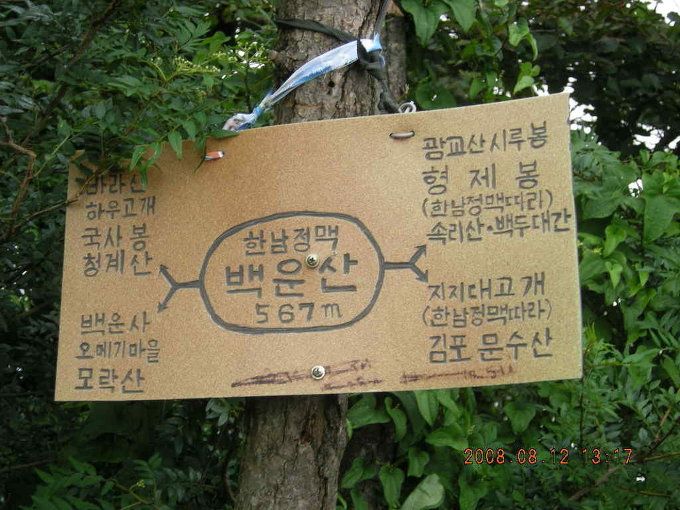 바라산
하우고개
국사봉
청계산
백운사
오메기마을
모락산
한남정맥
백운산
567m
광교산시루봉
형제봉
(한남정맥따라)
속리산·백두대간
지지대고개
(한남정맥따라)
김포 문수산
2008.08.12 13:17